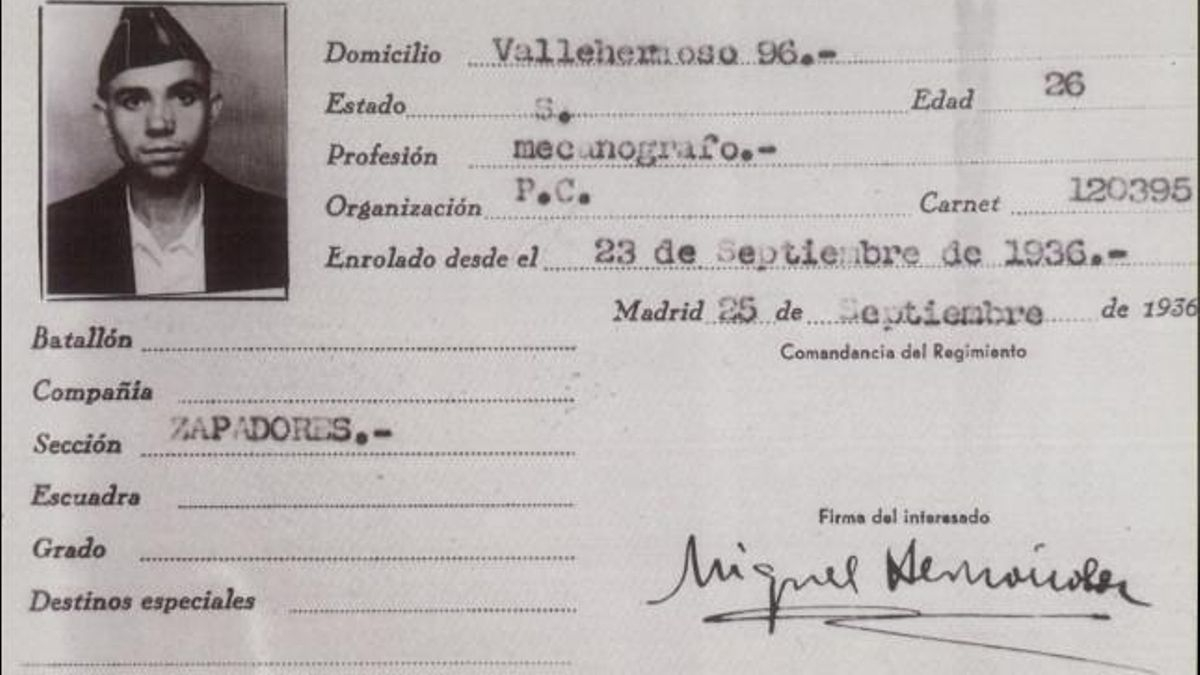 Domicilio Vallehermoso 96.-
Estado S. Edad 26
Profesión mecanografo.-
Organización P.C. Carnet 120395
Enrolado desde el 23 de Septiembre de 1936.-
Madrid 25 de Septiembre de 1936
Comandancia del Regimiento
Batallón
Compañia
Sección ZAPADORES.-
Escuadra
Grado
Destinos especiales
Firma del interesado
Miguel Hernández